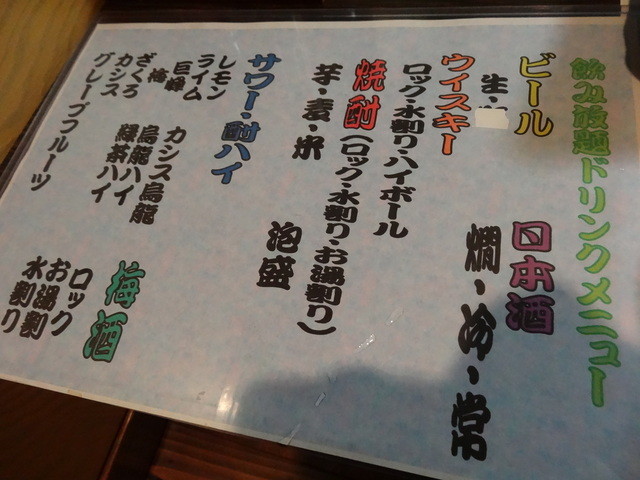 飲み放題ドリンクメニュー
ビール
生・
日本酒
燗・冷・常
ウイスキー
ロック・水割り・ハイボール
焼酎(ロック・水割り・お湯割り)
芋・麦・米
泡盛
サワー・酎ハイ
レモン
ライム
巨峰
梅
ざくろ
カシス
グレープフルーツ
カシス烏龍
烏龍ハイ
緑茶ハイ
梅酒
ロック
お湯割
水割り